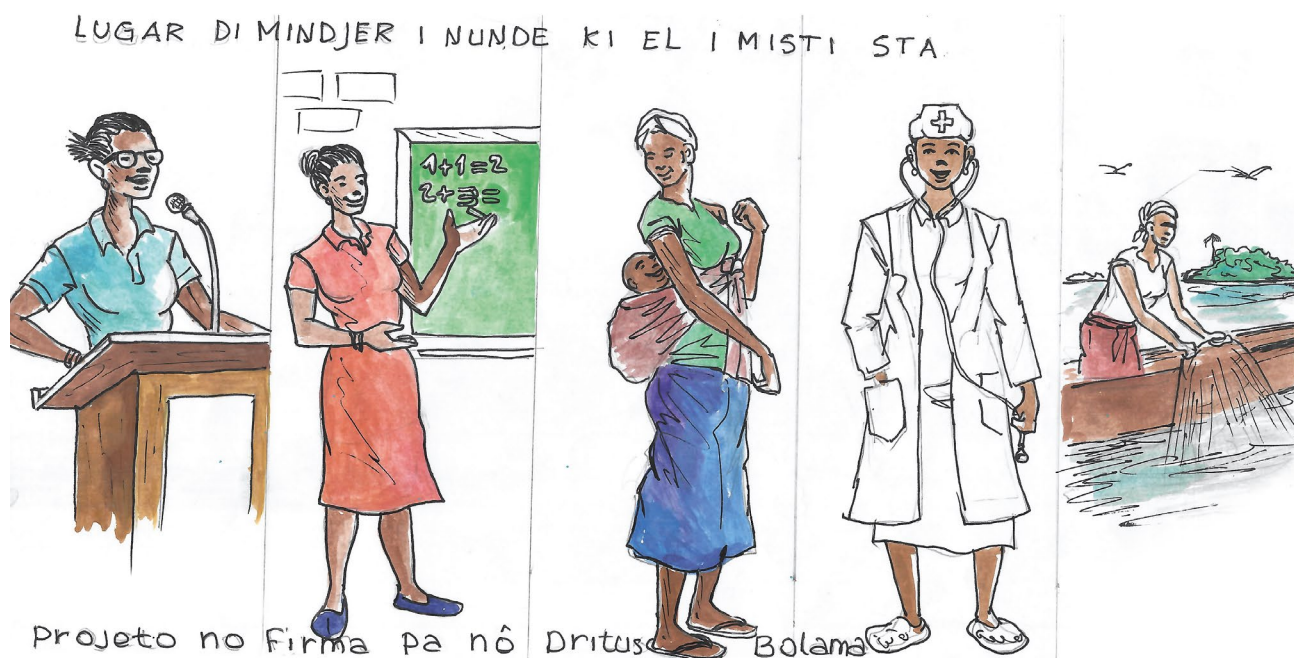 LUGAR DI MINDJER I NUNDE KI EL I MISTI STA
1+1=2
2+3=
Projeto no Firma pa nô Dritus Bolama